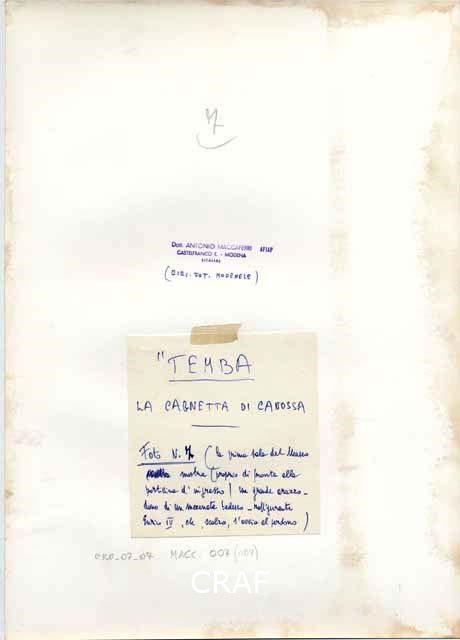 7
Dott. ANTONIO MACCAFERRI AFIAP
CASTELFRANCO E. - MODENA
(ITALIA)
(CIRC. FOT. MODENESE)
"TEMBA
LA CAGNETTA DI CANOSSA
Foto N. 7 (la prima sala del Museo
mostra (proprio di fronte alla
porticina d'ingresso) un grande arazzo -
dono di un mecenate tedesco - raffigurante
Enrico IV, che, scalzo, s'avvia al perdono)
CRO_07_07 MACC. 007 (007)
CRAF